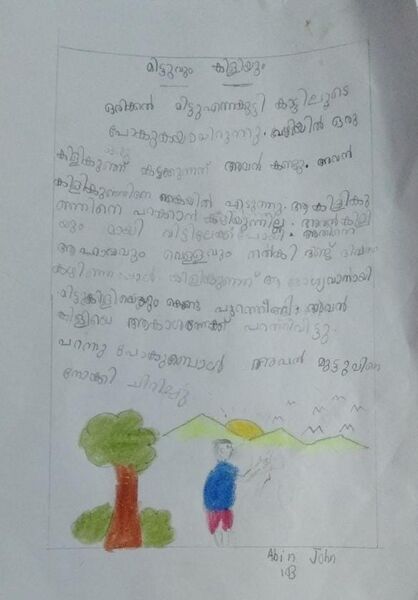 മിട്ടുവും കിളിയും
ഒരിക്കൽ മിട്ടുഎന്നകുട്ടി കാട്ടിലൂടെ
പോകുകയായിരുന്നു. വഴിയിൽ ഒരു
കിളികുഞ്ഞ് കിടക്കുന്നത് അവൻ കണ്ടു. അവൻ
കിളികുഞ്ഞിനേ കൈയിൽ എടുത്തു. ആ കിളികു
ഞ്ഞിനെ പറക്കാൻ കഴിയുന്നില്ല. അവൻ കിളി
യും മായി വീട്ടിലേക്ക് പോയി. അതിനെ
ആഹാരവും വെള്ളവും നൽകി രണ്ട് ദിവസം
കഴിഞ്ഞപ്പോൾ കിളികുഞ്ഞ് ആരോഗ്യവാനായി
മിട്ടുകിളിയെയും കൊണ്ടു പുറത്തിറങ്ങി. അവൻ
കിളിയെ ആകാശത്തേക്ക് പറത്തിവിട്ടു.
പറന്നു പോകുമ്പോൾ അവൻ മുട്ടുവിനെ
നോക്കി ചിരിച്ചു
Abin John